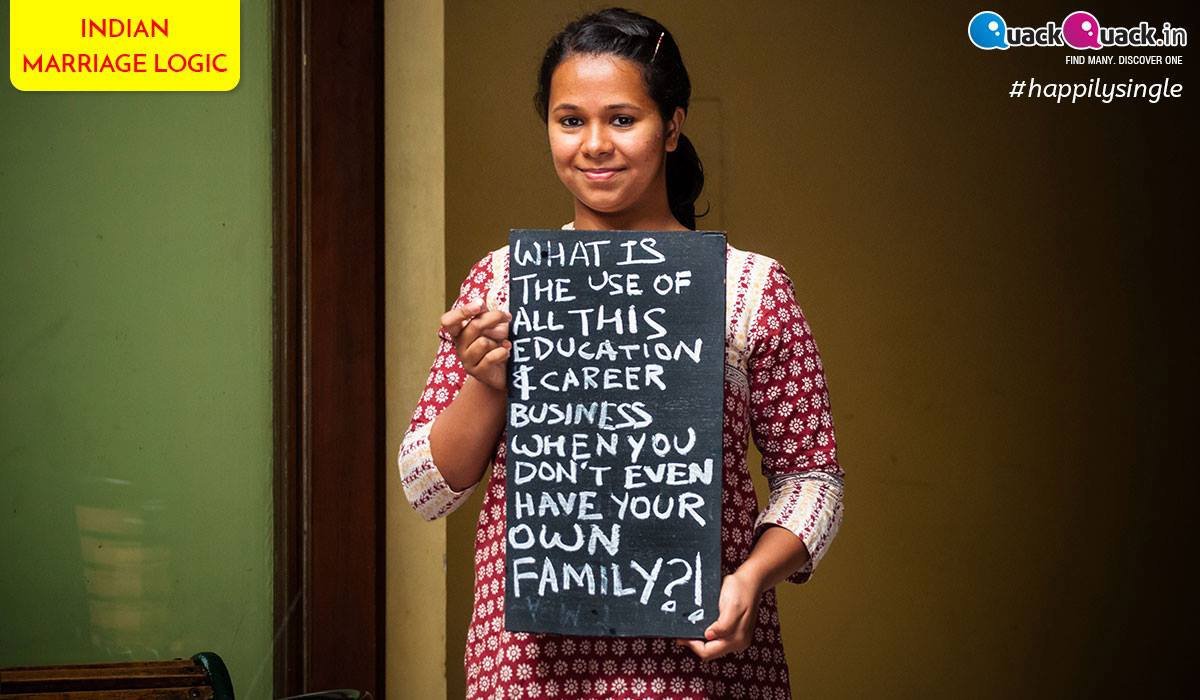 INDIAN
MARRIAGE LOGIC
QuackQuack.in
FIND MANY. DISCOVER ONE
#happilysingle
WHAT IS
THE USE OF
ALL THIS
EDUCATION
& CAREER
BUSINESS
WHEN YOU
DON'T EVEN
HAVE YOUR
OWN
FAMILY?!